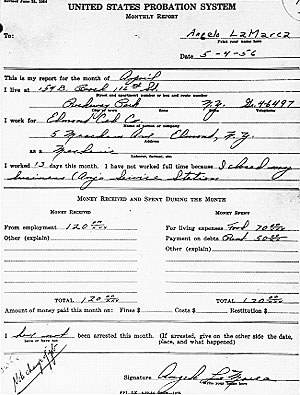 Revised June 24, 1954
UNITED STATES PROBATION SYSTEM
MONTHLY REPORT
To: Angelo LaMarca
Print your name here
Date 5-4-56
This is my report for the month of April
I live at 154 B. Beach 112th St
Street and apartment number or box and route number
Rockaway Park N.Y.
City
I work for Elmont Cab Co
Name of person or company
Address
as a Mechanic
Laborer, farmer, etc.
I worked 13 days this month. I have not worked full time because I closed my
business (Ang's Service Station)
MONEY RECEIVED AND SPENT DURING THE MONTH
MONEY RECEIVED MONEY SPENT
From employment 120 For living expenses Food 70
Other (explain) Payment on debts Rent 50
Other (explain)
TOTAL 120 TOTAL 120
Amount of money paid this month: Fines $ Costs $ Restitution $
I have not been arrested this month. (If arrested, give on the other side the date,
have or have not place, and what happened)
Signature Angelo LaMarca